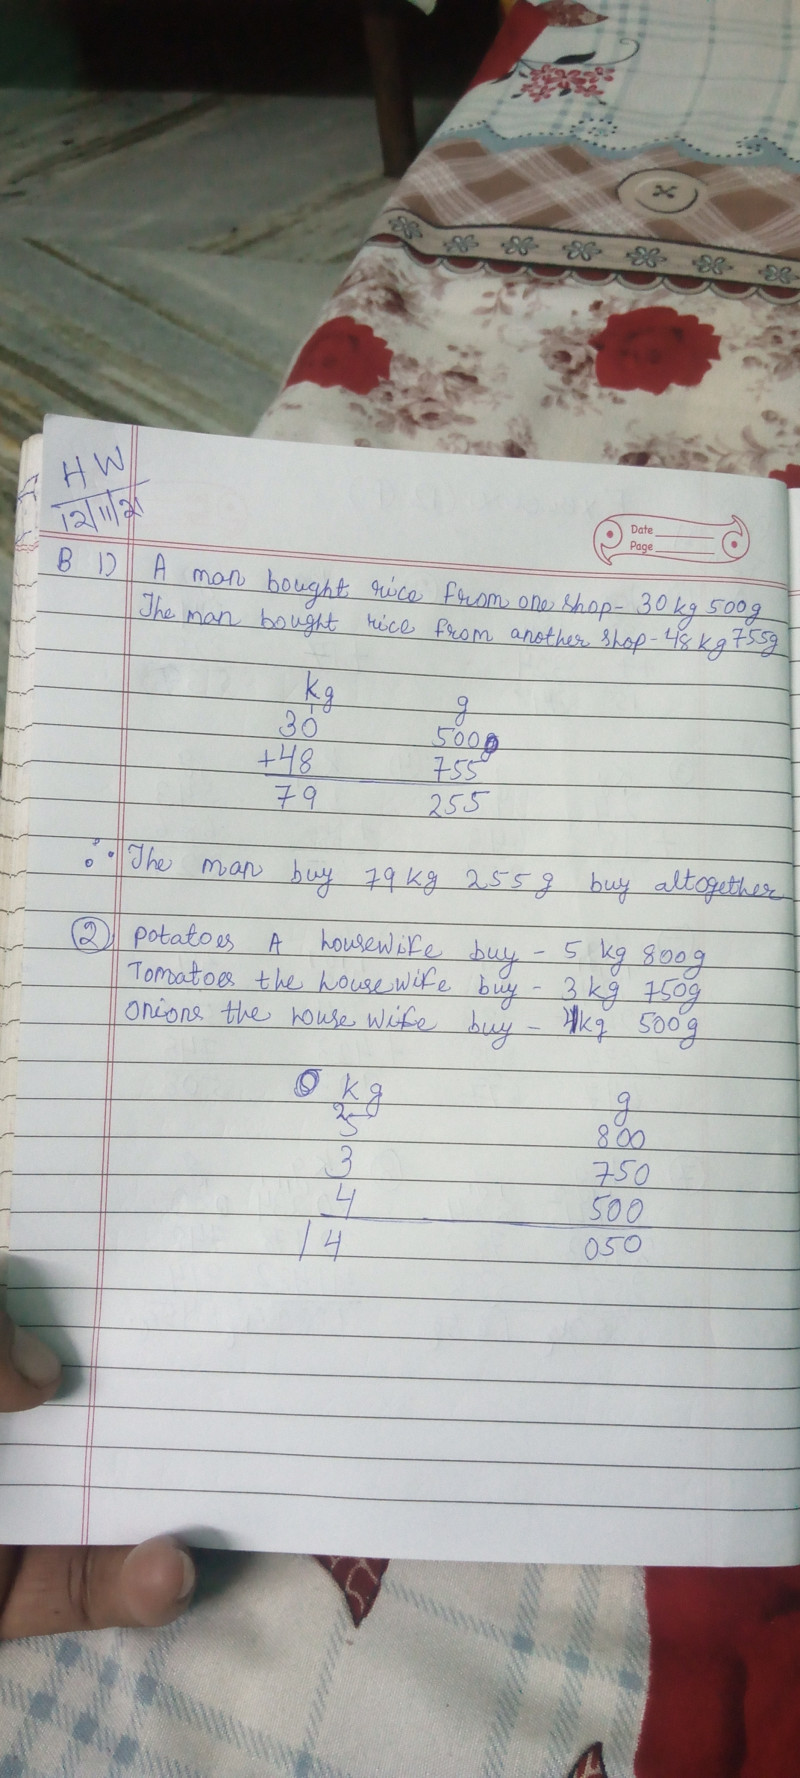 HW
12/11/21
Date
Page
B 1) A man bought rice from one shop- 30 kg 500g
The man bought rice from another shop- 48 kg 755g
kg g
1
30 500
+48 755
79 255
∴ The man buy 79 kg 255 g buy altogether
2 potatoes A housewife buy - 5 kg 800g
Tomatoes the housewife buy - 3 kg 750g
onions the house wife buy - 4kg 500g
kg g
2
5 800
3 750
4 500
14 050